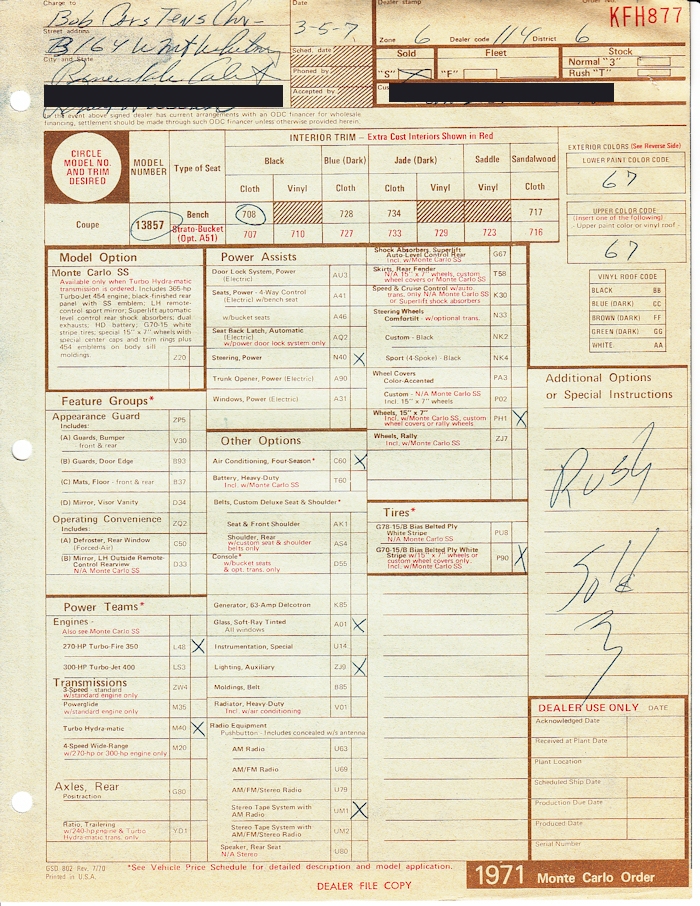 Charge to
Date
Dealer stamp
Order No.
KFH877
Street address
3-5-7
Zone 6 Dealer code 114 District 6
City and State
Sched. date
Sold Fleet Stock
Phoned by
"S" X "F" Normal "3"
Rush "T"
Accepted by
In the event above signed dealer has current arrangements with an ODC financer for wholesale
financing, settlement should be made through such ODC financer unless otherwise provided herein.
CIRCLE
MODEL NO.
AND TRIM
DESIRED
MODEL
NUMBER
Type of Seat
INTERIOR TRIM – Extra Cost Interiors Shown in Red
Black Blue (Dark) Jade (Dark) Saddle Sandalwood
Cloth Vinyl Cloth Cloth Vinyl Vinyl Cloth
Coupe 13857
Bench 708 728 734 717
Strato-Bucket
(Opt. A51) 707 710 727 733 729 723 716
EXTERIOR COLORS (See Reverse Side)
LOWER PAINT COLOR CODE
67
UPPER COLOR CODE
(Insert one of the following)
- Upper paint color or vinyl roof -
67
VINYL ROOF CODE
BLACK BB
BLUE (DARK) CC
BROWN (DARK) FF
GREEN (DARK) GG
WHITE AA
Model Option
Monte Carlo SS
Available only when Turbo Hydra-matic
transmission is ordered. Includes 365-hp
Turbo-Jet 454 engine; black-finished rear
panel with SS emblem; LH remote-
control sport mirror; Superlift automatic
level control rear shock absorbers; dual
exhausts; HD battery; G70-15 white
stripe tires; special 15" x 7" wheels with
special center caps and trim rings plus
454 emblems on body sill
moldings. Z20
Feature Groups*
Appearance Guard ZP5
Includes:
(A) Guards, Bumper V30
- front & rear
(B) Guards, Door Edge B93
(C) Mats, Floor - front & rear B37
(D) Mirror, Visor Vanity D34
Operating Convenience ZQ2
Includes:
(A) Defroster, Rear Window C50
(Forced-Air)
(B) Mirror, LH Outside Remote- D33
Control Rearview
N/A Monte Carlo SS
Power Teams*
Engines -
Also see Monte Carlo SS
270-HP Turbo-Fire 350 L48 X
300-HP Turbo-Jet 400 LS3
Transmissions
3-Speed - standard ZW4
w/standard engine only
Powerglide M35
w/standard engine only
Turbo Hydra-matic M40 X
4-Speed Wide-Range M20
w/270-hp or 300-hp engine only
Axles, Rear
Positraction G80
Ratio, Trailering YD1
w/240-hp engine & Turbo
Hydra-matic trans. only
Power Assists
Door Lock System, Power AU3
(Electric)
Seats, Power - 4-Way Control A41
(Electric) w/bench seat
w/bucket seats A46
Seat Back Latch, Automatic AQ2
(Electric)
w/power door lock system only
Steering, Power N40 X
Trunk Opener, Power (Electric) A90
Windows, Power (Electric) A31
Other Options
Air Conditioning, Four-Season* C60 X
Battery, Heavy-Duty T60
Incl. w/Monte Carlo SS
Belts, Custom Deluxe Seat & Shoulder*
Seat & Front Shoulder AK1
Shoulder, Rear AS4
w/custom seat & shoulder
belts only
Console* D55
w/bucket seats
& opt. trans. only
Generator, 63-Amp Delcotron K85
Glass, Soft-Ray Tinted A01 X
All windows
Instrumentation, Special U14
Lighting, Auxiliary ZJ9 X
Moldings, Belt B85
Radiator, Heavy-Duty V01
Incl. w/air conditioning
Radio Equipment
Pushbutton - Includes concealed w/s antenna
AM Radio U63
AM/FM Radio U69
AM/FM/Stereo Radio U79
Stereo Tape System with UM1 X
AM Radio
Stereo Tape System with UM2
AM/FM/Stereo Radio
Speaker, Rear Seat U80
N/A Stereo
Shock Absorbers, Superlift G67
Auto-Level Control Rear
Incl. w/Monte Carlo SS
Skirts, Rear Fender T58
N/A 15" x 7" wheels, custom
wheel covers or Monte Carlo SS
Speed & Cruise Control w/auto K30
trans. only N/A Monte Carlo SS
or Superlift shock absorbers
Steering Wheels
Comfortilt - w/optional trans. N33
Custom - Black NK2
Sport (4-Spoke) - Black NK4
Wheel Covers
Color-Accented PA3
Custom - N/A Monte Carlo SS P02
Incl. 15" x 7" wheels
Wheels, 15" x 7" PH1 X
Incl. w/Monte Carlo SS, custom
wheel covers or rally wheels
Wheels, Rally ZJ7
Incl. w/Monte Carlo SS
Tires*
G78-15/B Bias Belted Ply PU8
White Stripe
N/A Monte Carlo SS
G70-15/B Bias Belted Ply White P90 X
Stripe w/15" x 7" wheels or
custom wheel covers only.
Incl. w/Monte Carlo SS
Additional Options
or Special Instructions
Rush
Sold
3
DEALER USE ONLY DATE
Acknowledged Date
Received at Plant Date
Plant Location
Scheduled Ship Date
Production Due Date
Produced Date
Serial Number
GSD 802 Rev. 7/70
Printed in U.S.A.
*See Vehicle Price Schedule for detailed description and model application.
DEALER FILE COPY
1971 Monte Carlo Order